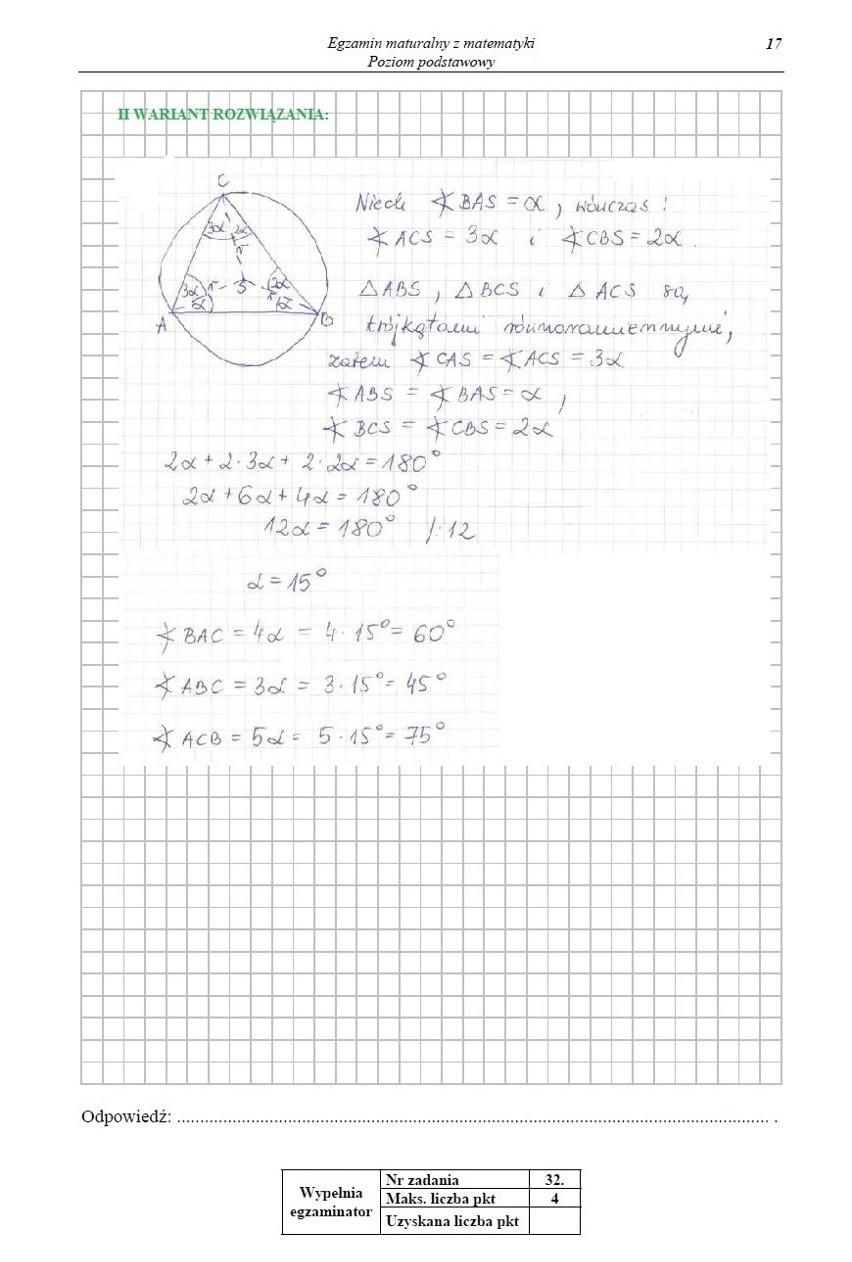 Egzamin maturalny z matematyki
Poziom podstawowy
17
II WARIANT ROZWIĄZANIA:
C
3α 2α
r
3α r S 2α
α r α
A B
Niech ∢ BAS = α, wówczas:
∢ ACS = 3α i ∢ CBS = 2α.
△ ABS, △ BCS i △ ACS są
trójkątami równoramiennymi,
zatem ∢ CAS = ∢ ACS = 3α
∢ ABS = ∢ BAS = α,
∢ BCS = ∢ CBS = 2α
2α + 2·3α + 2·2α = 180°
2α + 6α + 4α = 180°
12α = 180° /:12
α = 15°
∢ BAC = 4α = 4·15° = 60°
∢ ABC = 3α = 3·15° = 45°
∢ ACB = 5α = 5·15° = 75°
Odpowiedź: .................................................................................................................................. .
Wypełnia
egzaminator
Nr zadania 32.
Maks. liczba pkt 4
Uzyskana liczba pkt